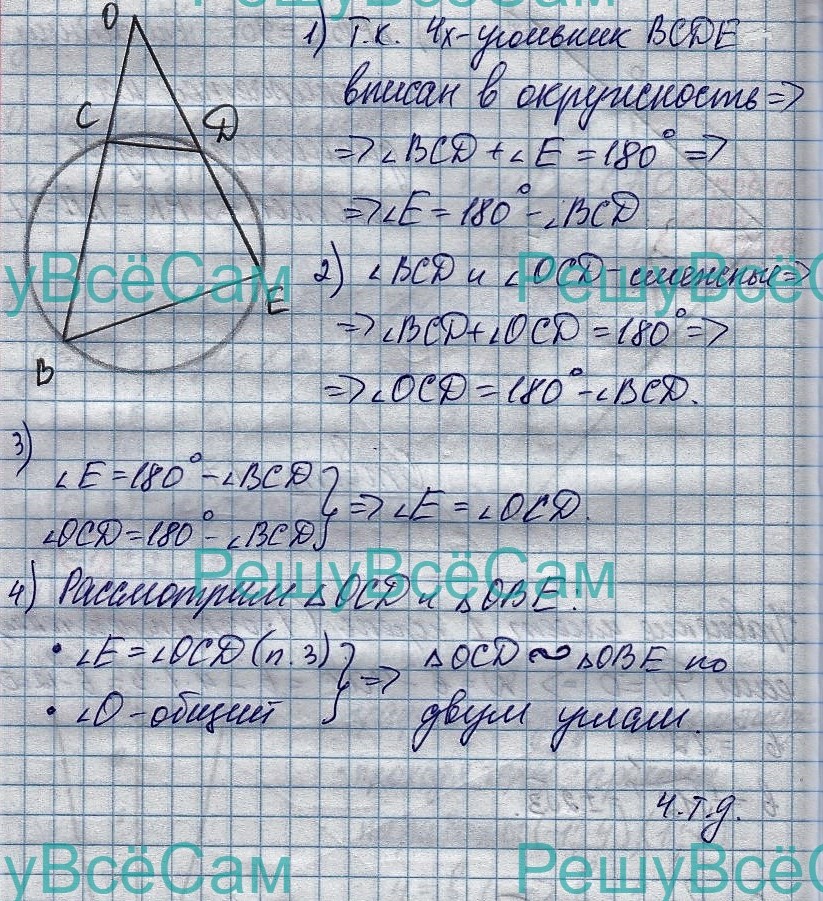 РешуВсёСам
O
C
D
E
B
1) Т.к. 4х-угольник BCDE
вписан в окружность =>
=> ∠BCD + ∠E = 180° =>
=> ∠E = 180° - ∠BCD
уВсёСам
РешуВсёС
2) ∠BCD и ∠OCD - смежные =>
=> ∠BCD + ∠OCD = 180° =>
=> ∠OCD = 180° - ∠BCD.
3)
∠E = 180° - ∠BCD
∠OCD = 180° - ∠BCD } => ∠E = ∠OCD.
РешуВсёСам
4) Рассмотрим △OCD и △OBE:
• ∠E = ∠OCD (п.3)
• ∠O - общий } => △OCD ∾ △OBE по
двум углам.
ч.т.д.
уВсёСам
РешуВсёС